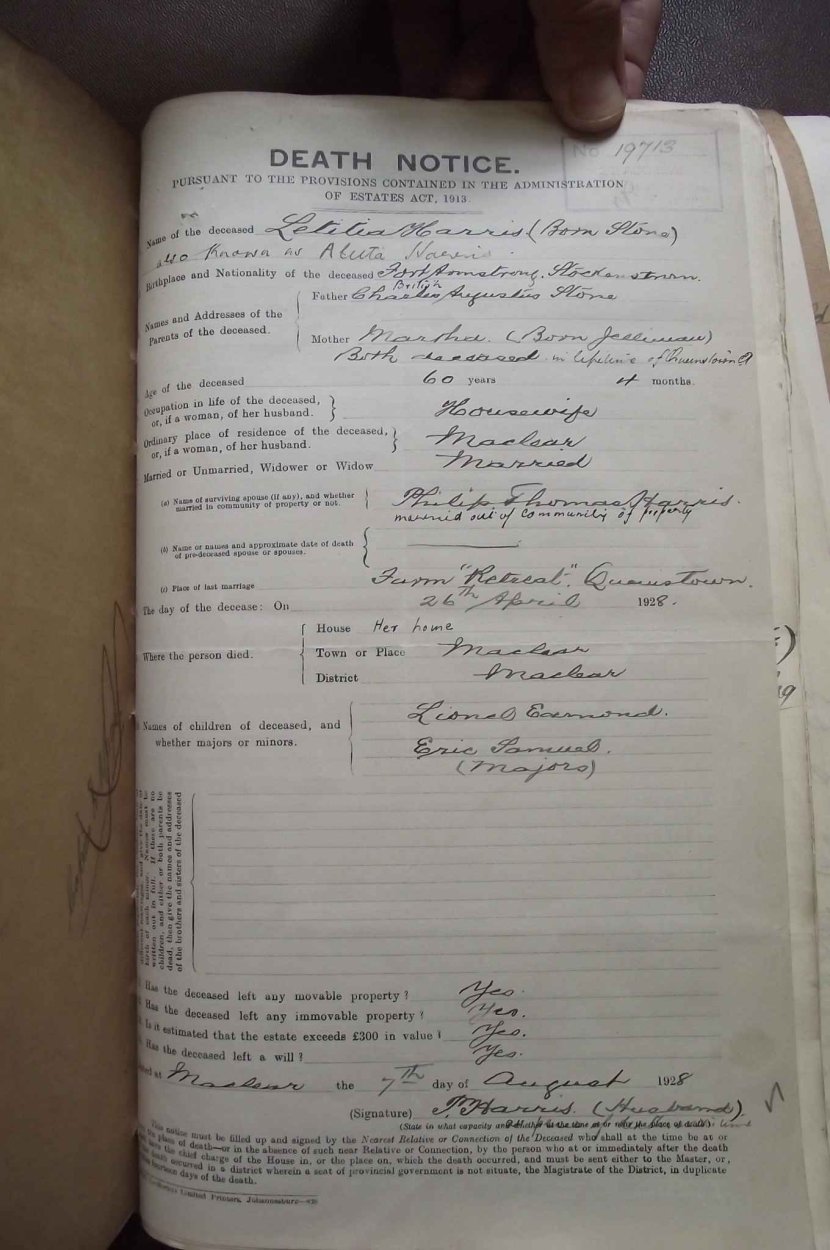 No 19713
DEATH NOTICE.
PURSUANT TO THE PROVISIONS CONTAINED IN THE ADMINISTRATION
OF ESTATES ACT, 1913.
Name of the deceased Letitia Harris (Born Stone)
also Known as Harris
Birthplace and Nationality of the deceased Fort Armstrong. Stockenstrom.
British
Names and Addresses of the Parents of the deceased.
Father Charles Augustus Stone
Mother Martha. (Born Jelliman)
Both deceased in lifetime of Queenstown
Age of the deceased 60 years 4 months.
Occupation in life of the deceased, or, if a woman, of her husband. Housewife
Ordinary place of residence of the deceased, or, if a woman, of her husband. Maclear
Married or Unmarried, Widower or Widow Married
(a) Name of surviving spouse (if any), and whether married in community of property or not. Philip Thomas Harris.
married out of community of property
(b) Name or names and approximate date of death of pre-deceased spouse or spouses.
(c) Place of last marriage Farm "Retreat", Queenstown.
The day of the decease: On 26th April 1928.
Where the person died.
House Her home
Town or Place Maclear
District Maclear
Names of children of deceased, and whether majors or minors.
Lionel Edmond.
Eric Samuel.
(Majors)
birth of each minor. Names must be
written out in full. If there are no
children, and either or both parents be
dead, then give the names and addresses
of the brothers and sisters of the deceased
Has the deceased left any movable property? Yes.
Has the deceased left any immovable property? Yes.
Is it estimated that the estate exceeds £300 in value? Yes.
Has the deceased left a will? Yes.
Maclear the 7th day of August 1928
(Signature) P.T. Harris. (Husband).
(State in what capacity and whether at the time at or near the place of death)
This notice must be filled up and signed by the Nearest Relative or Connection of the Deceased who shall at the time be at or
the place of death—or in the absence of such near Relative or Connection, by the person who at or immediately after the death
the chief charge of the House in, or the place on, which the death occurred, and must be sent either to the Master, or,
death occurred in a district wherein a seat of provincial government is not situate, the Magistrate of the District, in duplicate
fourteen days of the death.
Limited Printers, Johannesburg